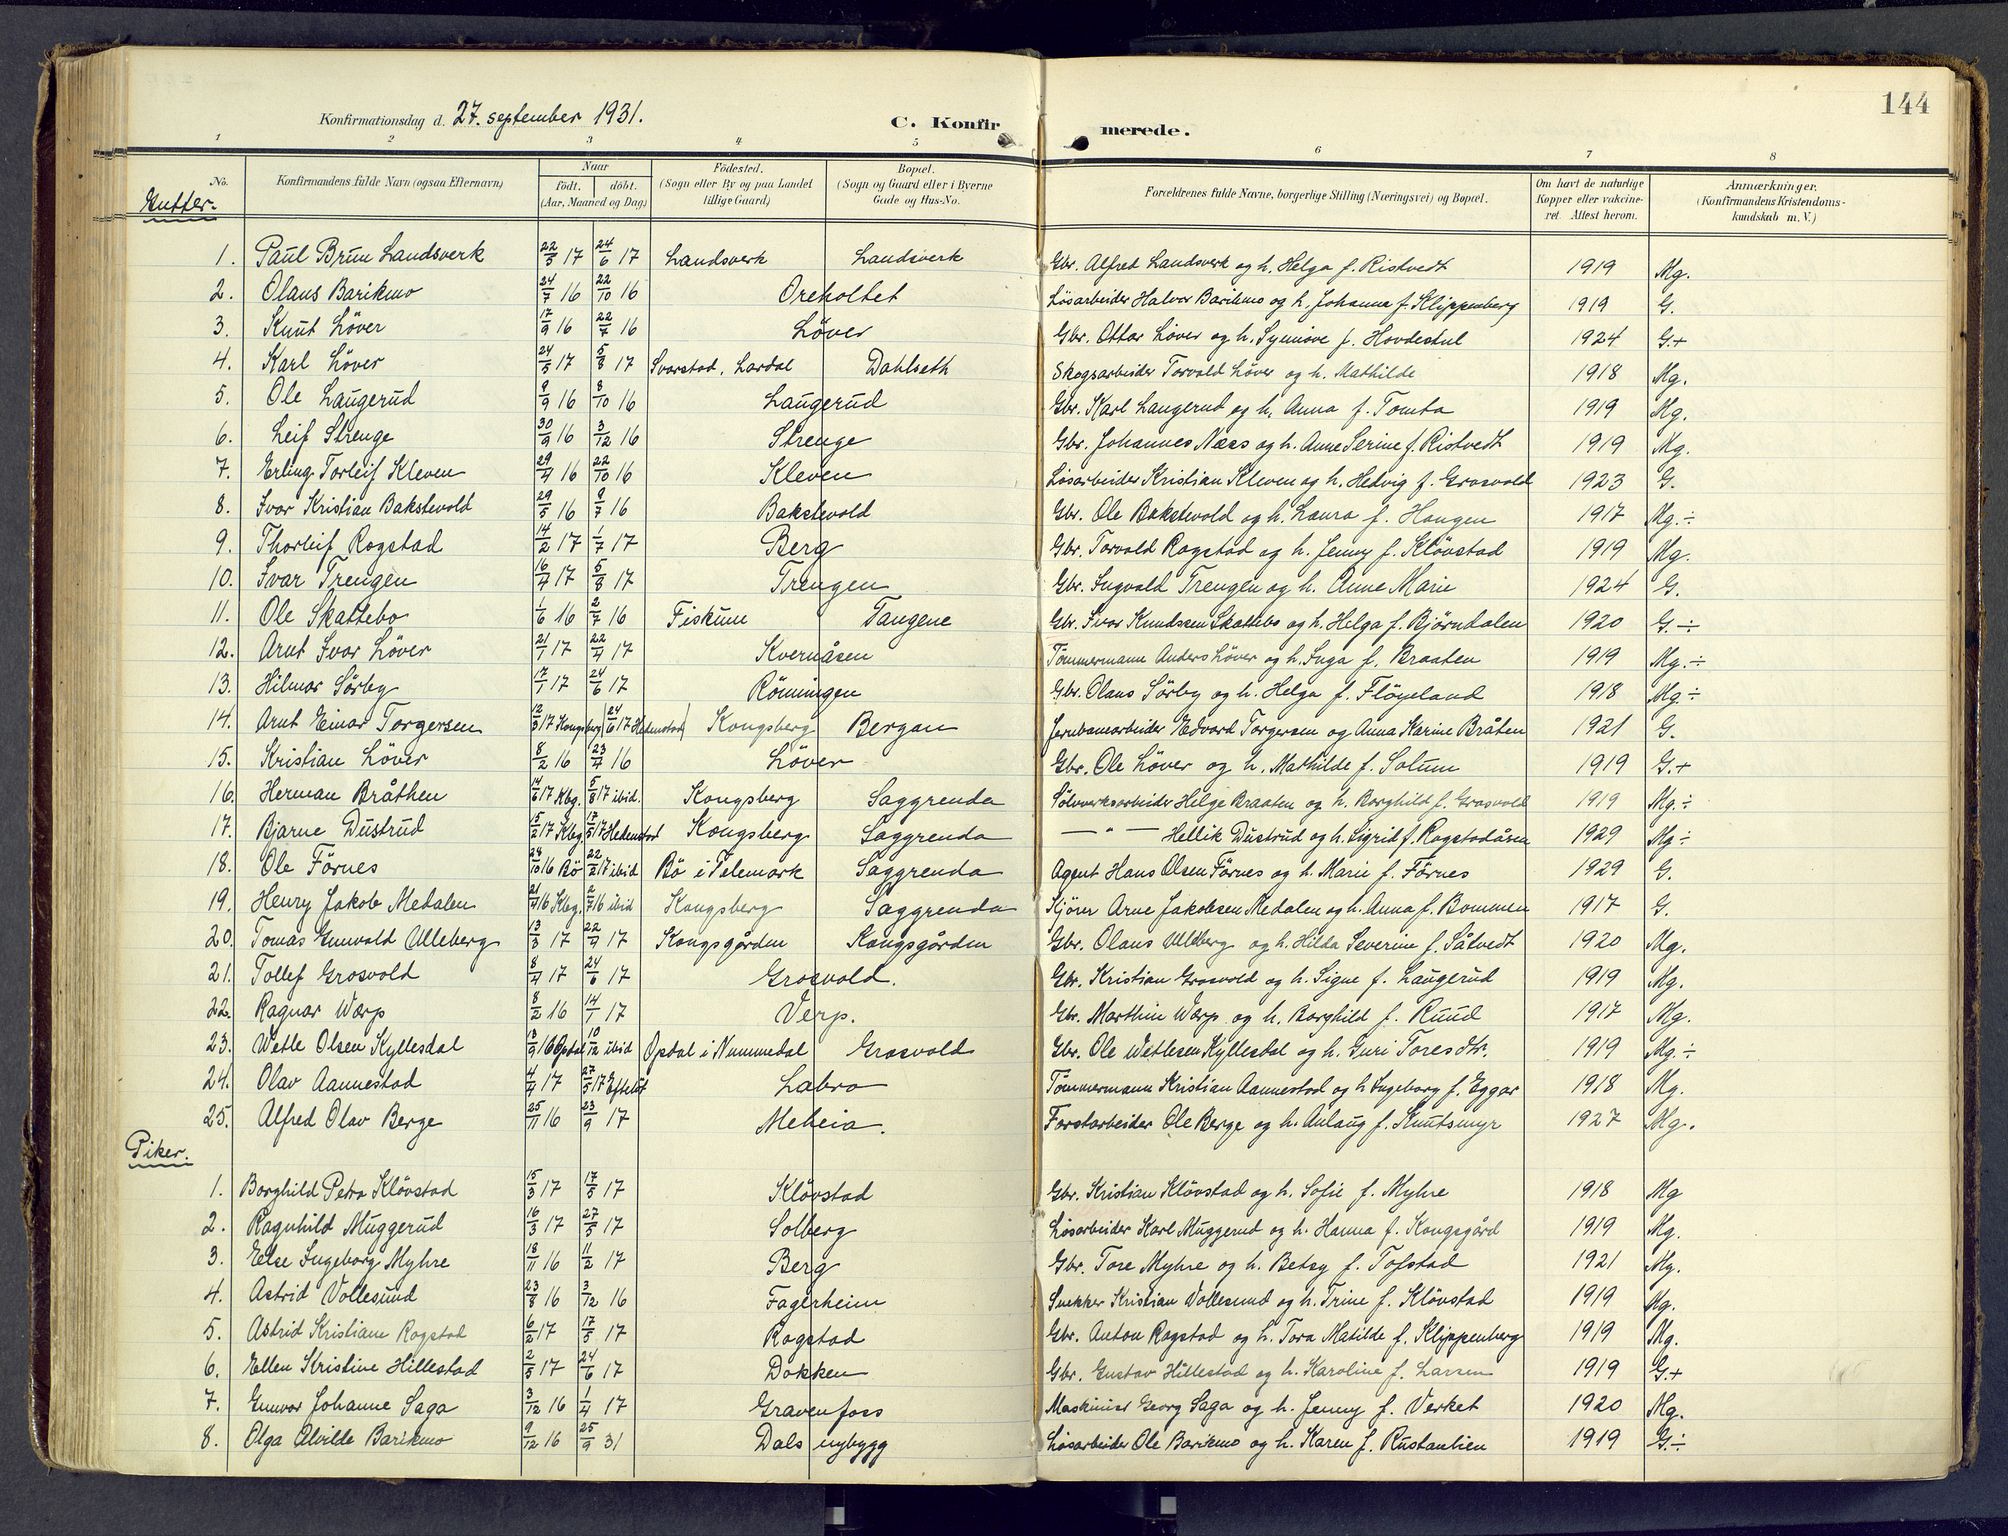 Konfirmationsdag d. 27. september 1931.
C. Konfirmerede.
144
1 2 3 4 5 6 7 8
No.
Konfirmandens fulde Navn (ogsaa Efternavn)
Naar
født. døbt.
(Aar, Maaned og Dag)
Fødested.
(Sogn eller By og paa Landet tillige Gaard)
Bopæl.
(Sogn og Gaard eller i Byerne Gade og Hus-No.
Forældrenes fulde Navne, borgerlige Stilling (Næringsvei) og Bopæl.
Om havt de naturlige Kopper eller vakcineret. Attest herom.
Anmærkninger.
(Konfirmandens Kristendomskundskab m. V.)
Gutter.
1. Paul Brun Landsverk 22/3 17 24/6 17 Landsverk Landsverk Gbr. Alfred Landsverk og h. Helga f. Ristvedt 1919 Mg.
2. Olaus Barikmo 24/7 16 22/10 16 Oreholtet Løsarbeider Halvor Barikmo og h. Johanna f. Klippenberg 1919 G.
3. Knut Løver 17/9 16 22/7 16 Løver Gbr. Ottar Løver og h. Synnøve f. Hovdestul 1924 G+
4. Karl Løver 24/5 17 5/8 17 Svarstad, Lardal Dahlseth Skogsarbeider Torvald Løver og h. Mathilde 1918 Mg.
5. Ole Laugerud 9/9 16 8/10 16 Laugerud Gbr. Karl Laugerud og h. Anna f. Tomta 1919 Mg.
6. Leif Strenge 30/9 16 3/12 16 Strenge Gbr. Johannes Næss og h. Anne Serine f. Ristvedt 1919 Mg.
7. Erling Torleif Kleven 29/4 16 22/10 16 Kleven Løsarbeider Kristian Kleven og h. Hedvig f. Grosvold 1923 G.
8. Ivar Kristian Bakstevold 29/5 16 9/7 16 Bakstevold Gbr. Ole Bakstevold og h. Laura f. Haugen 1917 Mg.÷
9. Thorleif Rogstad 14/2 17 1/7 17 Berg Gbr. Torvald Rogstad og h. Jenny f. Kløvstad 1919 Mg.
10. Ivar Trengen 16/4 17 5/8 17 Trengen Gbr. Ingvald Trengen og h. Anne Marie 1924 G.
11. Ole Skattebo 1/6 16 2/7 16 Fiskum Tangene Gbr. Ivar Knudssen Skattebo og h. Helga f. Bjørndalen 1920 G.÷
12. Arnt Ivar Løver 21/1 17 22/4 17 Kvernåsen Tømmermann Anders Løver og h. Inga f. Braaten 1919 Mg.÷
13. Hilmar Sørby 17/1 17 24/6 17 Rønningen Gbr. Olaus Sørby og h. Helga f. Fløyeland 1918 Mg÷
14. Arnt Einar Torgersen 12/3 17 Kongsberg 24/6 17 Hedenstad Kongsberg Bergan Jernbanearbeider Edvard Torgersen og Anna Karine Bråten 1921 G.
15. Kristian Løver 8/2 16 23/4 16 Løver Gbr. Ole Løver og h. Mathilde f. Solum 1919 G.+
16. Herman Bråthen 14/6 17 Kbg. 5/8 17 ibid. Kongsberg Saggrenda Sølvverksarbeider Helge Braaten og h. Borghild f. Grosvold 1919 Mg.÷
17. Bjarne Dustrud 15/2 17 Kbg. 17/5 17 Hedenstad Kongsberg Saggrenda — " — Hellik Dustrud og h. Sigrid f. Rogstadåsen 1929 Mg÷
18. Ole Førnes 24/10 16 Bø 22/2 17 ibid Bø i Telemark Saggrenda Agent Hans Olsen Førnes og h. Marie f. Førnes 1929 G.
19. Henry Jakob Medalen 21/4 16 Kbg. 2/7 16 ibid Kongsberg Saggrenda Kjører Arne Jakobsen Medalen og h. Anna f. Bommen 1917 G.
20. Tomas Gunvald Ulleberg 13/3 17 22/7 17 Kongsgården Kongsgården Gbr. Olaus Ulleberg og h. Hilda Severine f. Såtvedt 1920 Mg.
21. Tollef Grosvold 8/4 17 24/6 17 Grosvold. Gbr. Kristian Grosvold og h. Signe f. Laugerud 1919 Mg.
22. Ragnar Værp 8/2 16 14/1 17 Verp. Gbr. Marthin Værp og h. Borghild f. Ruud 1917 Mg.
23. Wetle Olsen Kyllesdal 13/9 16 Opdal 10/12 ibid Opdal i Nummedal Grosvold Gbr. Ole Wetlesen Kyllesdal og h. Guri Toresdtr. 1919 Mg.÷
24. Olav Aannestad 4/4 17 27/5 17 Efteløt Labro Tømmermann Kristian Aannestad og h. Ingeborg f. Eggar 1918 Mg.
25. Alfred Olav Berge 25/11 16 23/9 17 Meheia. Forstarbeider Ole Berge og h. Aulaug f. Knutsmyr 1927 Mg.
Piker.
1. Borghild Petra Kløvstad 15/3 17 17/5 17 Kløvstad Gbr. Kristian Kløvstad og h. Sofie f. Myhre 1918 Mg
2. Ragnhild Muggerud 16/3 17 27/5 17 Solberg Løsarbeider Karl Muggerud og h. Hanna f. Kongsgård 1919 Mg.
3. Else Ingeborg Myhre 18/11 16 11/2 17 Berg Gbr. Tore Myhre og h. Betsy f. Tofstad 1921 Mg.
4. Astrid Vollesund 23/8 16 3/12 16 Fagerheim Snekker Kristian Vollesund og h. Trine f. Kløvstad 1919 Mg.
5. Astrid Kristiane Rogstad 6/2 17 17/5 17 Rogstad Gbr. Anton Rogstad og h. Tora Matilde f. Klippenberg 1919 Mg.
6. Ellen Kristine Hillestad 2/5 17 24/6 17 Dokken Gbr. Gustav Hillestad og h. Karoline f. Larsen 1919 G.+
7. Gunvor Johanne Saga 3/12 16 1/4 17 Gravenfoss Maskinist Georg Saga og h. Jenny f. Verket 1920 Mg.
8. Olga Alvilde Barikmo 9/12 16 25/9 31 Dals nybygg Løsarbeider Ole Barikmo og h. Karen f. Rustanlien 1919 G.÷